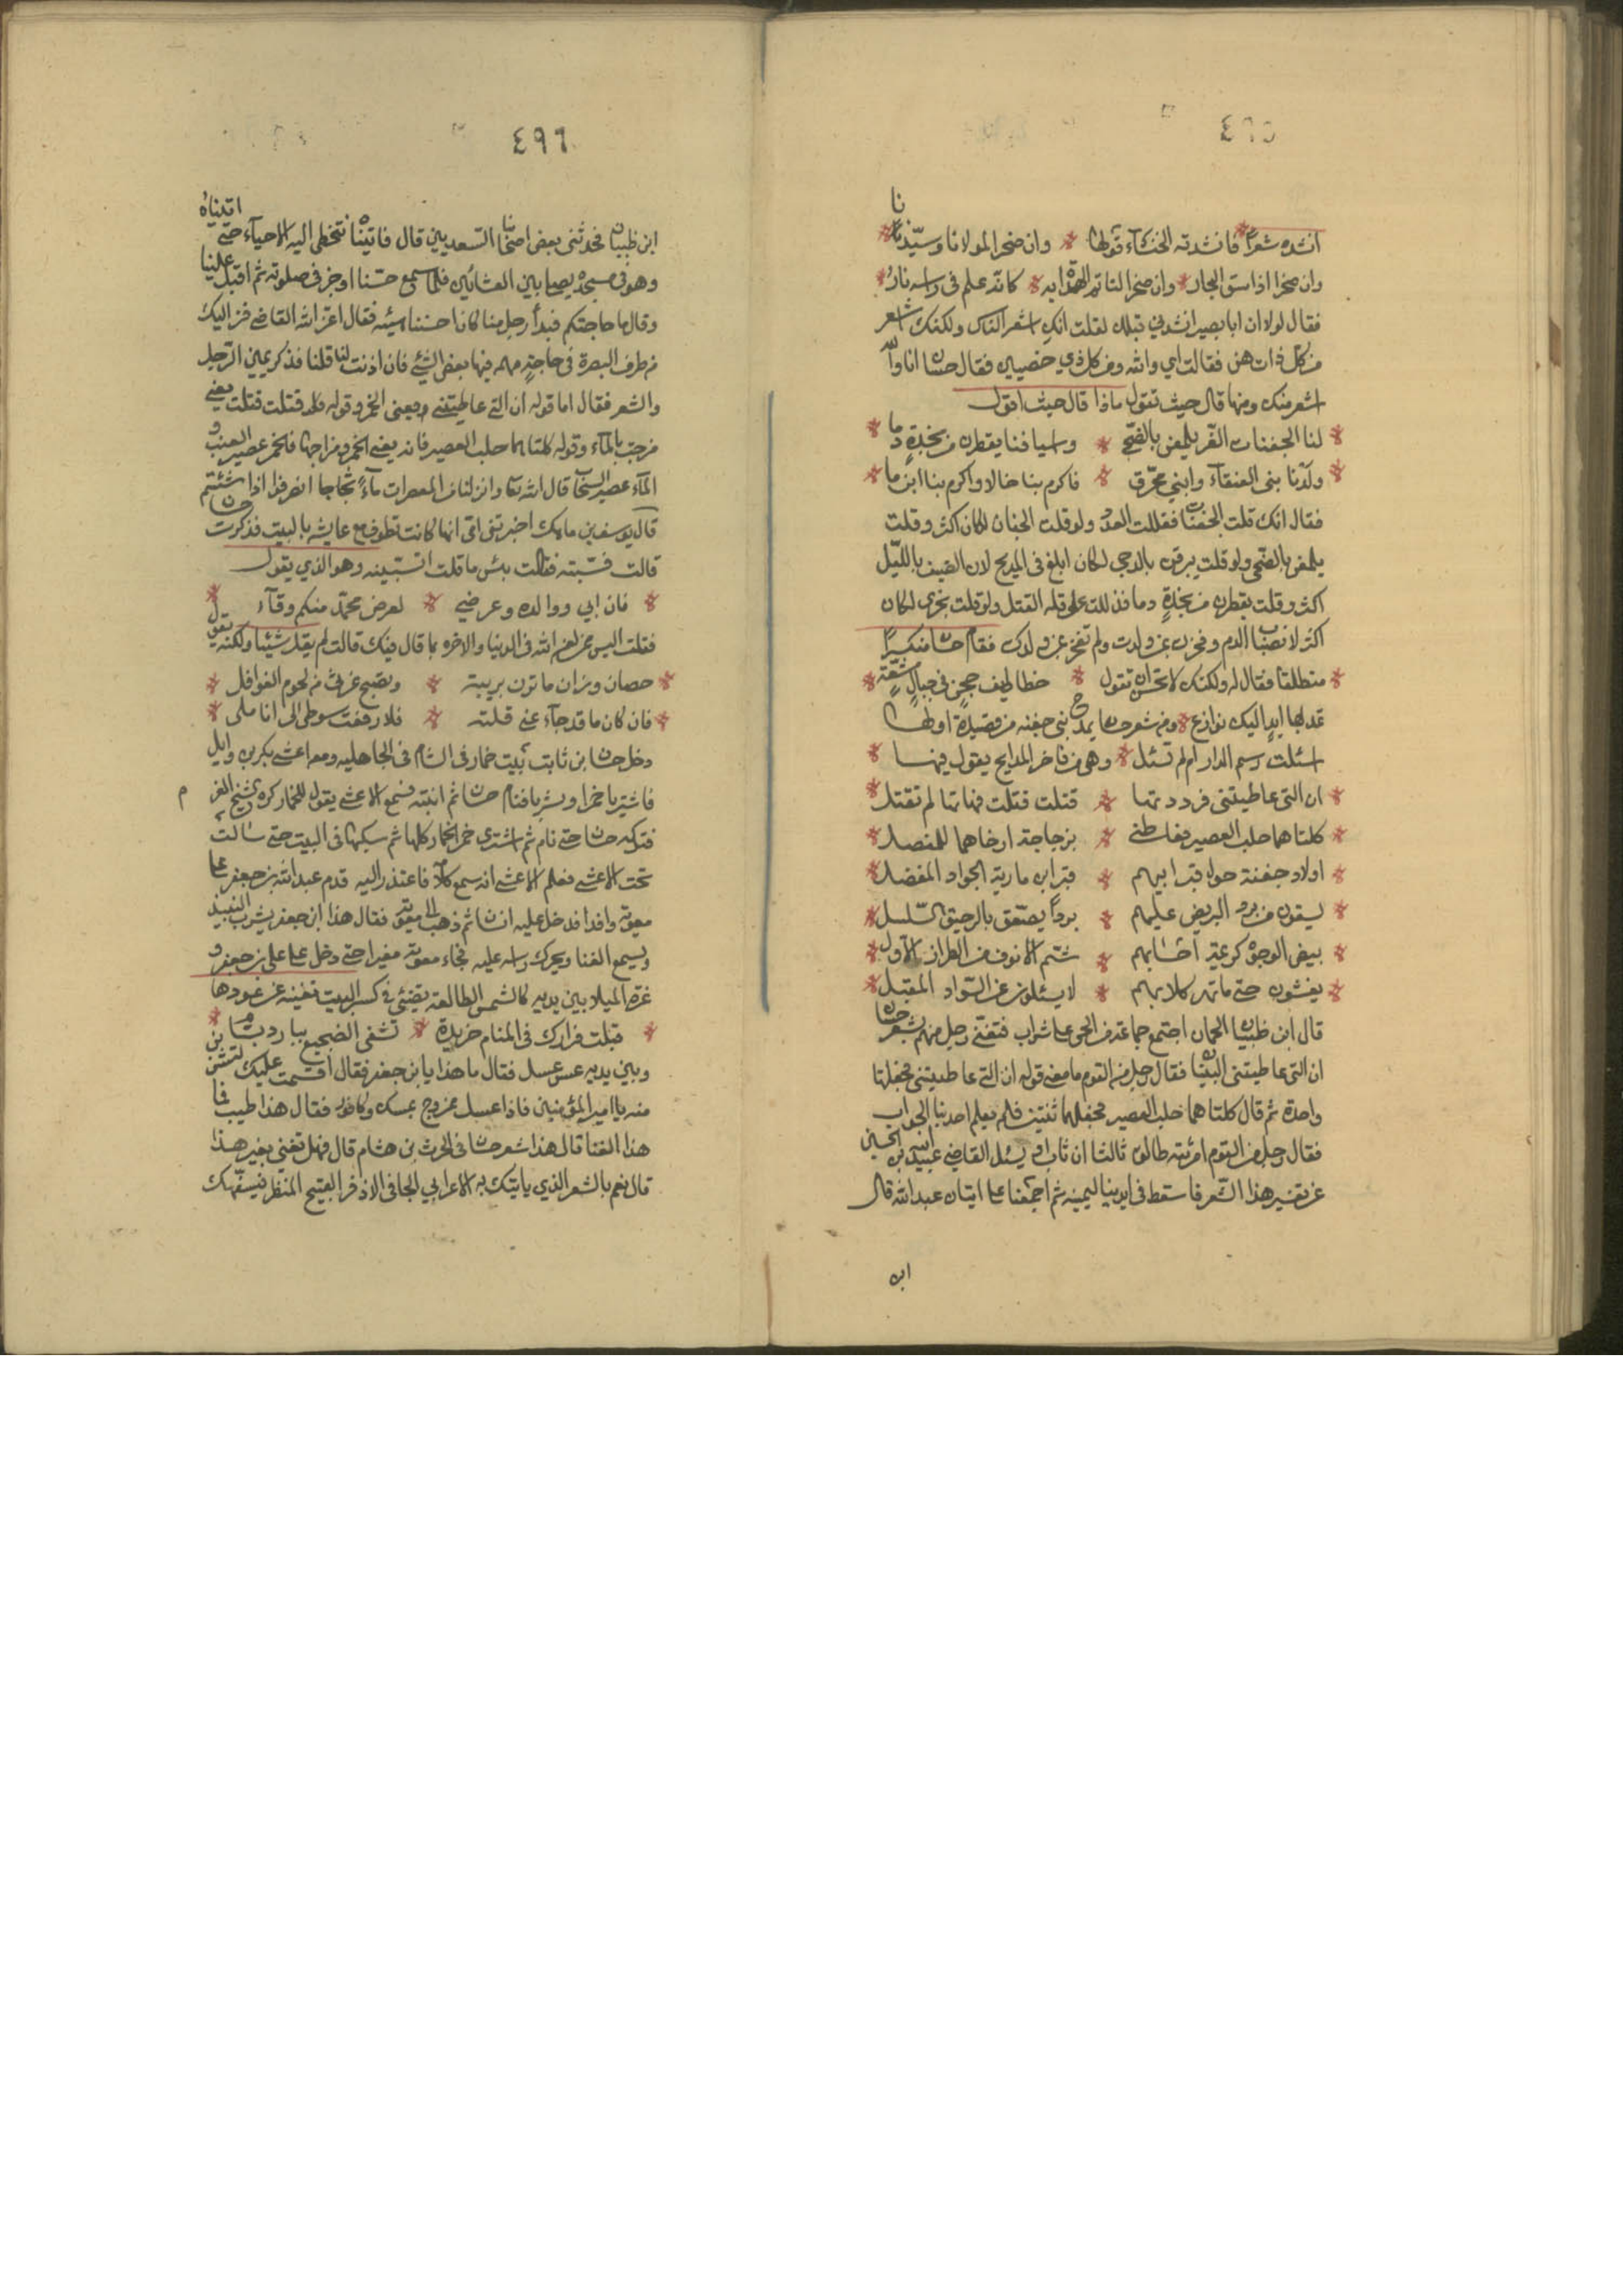 ٤٩٥
انشده شعرا فانشدته الخنسآء قولها * وان صخرا لمولانا وسيّدنا *
وان صخرا اذا ستق الجار * وان صخرا لتاتم الهداة به * كانه علم فى راسه نار *
فقال لولا ان ابا بصير انشدني قبلك لقلت انك اشعر الناس ولكنك اشعر
من كل ذات هن فقالت اي والله ومن كل ذي خصيين فقال حسان انا والله
اشعر منك ومنها قال حيث تقول ماذا قال حيث اقول
* لنا الجفنات الغر يلمعن بالضحى * واسيافنا يقطرن من نجدة دما *
* ولدنا بنى العنقآء وابني محرّق * فاكرم بنا خالا واكرم بنا ابن ما *
فقال انك قلت الجفنات فقللت العدد ولو قلت الجفان لكان اكثر وقلت
يلمعن بالضحى ولو قلت يبرقن بالدجى لكان ابلغ فى المديح لان الضيف بالليل
اكثر وقلت يقطرن من نجدة دما فدللت على قلة القتل ولو قلت يجرى لكان
اكثر لانصباب الدم وفخرت بمن ولدت ولم تفخر بمن ولدك فقام حسان منكسرًا
* منطلقا فقال له ولكنك لا تحسن ان تقول * خطاطيف حجن فى حبال
تمد بها ايد اليك نوازع * ومن شعر حسان يمدح بنى جفنه من قصيدة اولها
اسئلت رسم الدار ام لم تسئل * وهى من فاخر المدايح يقول فيها *
* ان التى عاطيتنى فرددتها * قتلت قتلت فهاتها لم تقتل *
* كلتاهما حلب العصير فعاطنى * بزجاجة ارخاهما للمفصل *
* اولاد جفنة حول قبر ابيهم * قبر ابن مارية الجواد المفضل *
* يسقون من برد البريص عليهم * بردًا يصفق بالرحيق السلسل *
* بيض الوجوه كريمة احسابهم * شم الانوف من الطراز الاول *
* يغشون حتى ما تهر كلابهم * لا يسئلون عن السواد المقبل *
قال ابن ظبيان الحمان اجتمع جماعة من الحى على شراب فتغنى رجل منهم بشعر حسان
ان التى عاطيتنى البيتان فقال رجل من القوم ما معنى قوله ان التى عاطيتنى فجعلها
واحدة ثم قال كلتاهما حلب العصير فجعلهما ثنتين فلم يعلم احد منا الجواب
فقال رجل من القوم امرئته طالق ثالثا ان بات او يسئل القاضى عبيد الله بن الحسين
عن تفسير هذا الشعر فاسقط فى ايدينا ليمينه ثم اجتمعنا على اتيان عبد الله قال
ابن
٤٩٦
ابن ظبيان فحدثنى بعض اصحابنا السعديين قال فاتيناه نتخطى اليه الاحيآء حتى اتيناه
وهو فى مسجده يصلى بين العشائين فلما سمع حسنا اوجز فى صلوته ثم اقبل علينا
وقال ما حاجتكم فبدأ رجل منا كان احسننا هيئه فقال اعز الله القاضى نحن اليك
من طرف البصرة فى حاجة مهمه فيها بعض الشئ فان اذنت لنا قلنا فذكر يمين الرجل
والشعر فقال اما قوله ان التى عاطيتنى فيعنى الخمر وقوله قتلت قتلت يعنى
مزجت بالمآء وقوله كلتاهما حلب العصير فانه يعنى الخمر ومزاجها فالخمر عصير العنب و
المآء عصير السحاب قال الله تعا وانزلنا من المعصرات مآءً ثجاجا انصرفوا اذا شئتم
قال يوسف بن ماهك اخبرتنى امى انها كانت تطوف مع عايشه بالبيت فذكرت حسان
قالت فسببته فقالت بئس ما قلت اتسبينه وهو الذي يقول
* فان ابي ووالده وعرضي * لعرض محمد منكم وقآء *
فقلت اليس ممن لعن الله فى الدنيا والاخره بما قال فيك قالت لم يقل شيئا ولكنه يقول
* حصان رزان ما تزن بريبة * وتصبح غرثى من لحوم الغوافل *
* فان كان ما قد جآء عنى قلته * فلا رفعت سوطى الى انا ملى *
دخل حسان ابن ثابت بيت خمار فى الشام فى الجاهليه ومعه اعشى بكر بن وايل
فاشتريا خمرا وشربا فنام حسان ثم انتبه فسمع الاعشى يقول للخمار كره الشيخ الغرم
فتركه حسان حتى نام ثم اشترى خمر الخمار كلها ثم سكبها فى البيت حتى سالت
تحت الاعشى فعلم الاعشى انه سمع كلامه فاعتذر اليه قدم عبد الله بن جعفر على
معويه وافدا فدخل عليه انسان ثم ذهب الى معويه فقال هذا ابن جعفر يشرب النبيذ
ويسمع الغنا ويحرك راسه عليه فجاء معويه مغيرا حتى دخل على بن جعفر و
عزة الميلا بين يديه كالشمس الطالعة يضئ فى كسر البيت تغنيه عن عودها
* تبلت فؤادك فى المنام خريدة * تشفى الضجيع ببارد بسام *
وبين يديه عس عسل فقال ما هذا يا ابن جعفر فقال اقسمت عليك لتشربن
منه يا امير المؤمنين فاذا عسل ممزوج بمسك وكافور فقال هذا طيب فما
هذا الغنا قال هذا شعر حسان فى الحرث بن هشام قال فهل تغنى بغير هذا
قال نعم بالشعر الذي ياتيك به الاعرابي الجافى الاذفر القبيح المنظر